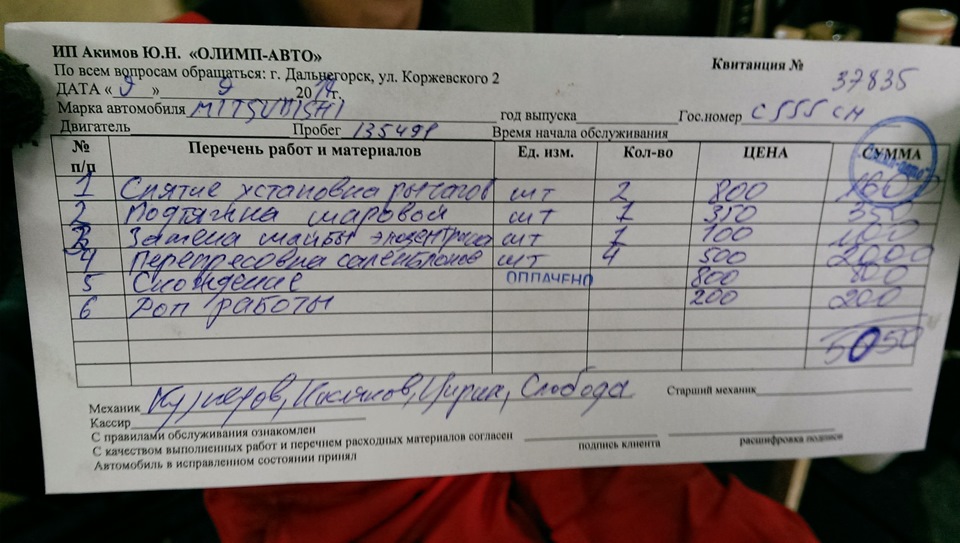 ИП Акимов Ю.Н. «ОЛИМП-АВТО»
Квитанция № 37835
По всем вопросам обращаться: г. Дальнегорск, ул. Коржевского 2
ДАТА « 9 » 9 2014г.
Марка автомобиля MITSUBISHI год выпуска Гос.номер С 555 СМ
Двигатель Пробег 135491 Время начала обслуживания
№ п/п Перечень работ и материалов Ед. изм. Кол-во ЦЕНА СУММА
1 Снятие установка рычагов шт 2 800 1600
2 Подтяжка шаровой шт 1 350 350
3 Замена шайбы эксцентрика шт 1 100 100
4 Перепресовка саленблоков шт 4 500 2000
5 Схождение ОПЛАЧЕНО 800 800
6 Доп работы 200 200
5050
Механик Слобода Старший механик
Кассир
С правилами обслуживания ознакомлен
С качеством выполненных работ и перечнем расходных материалов согласен
подпись клиента расшифровка подписи
Автомобиль в исправленном состоянии принял